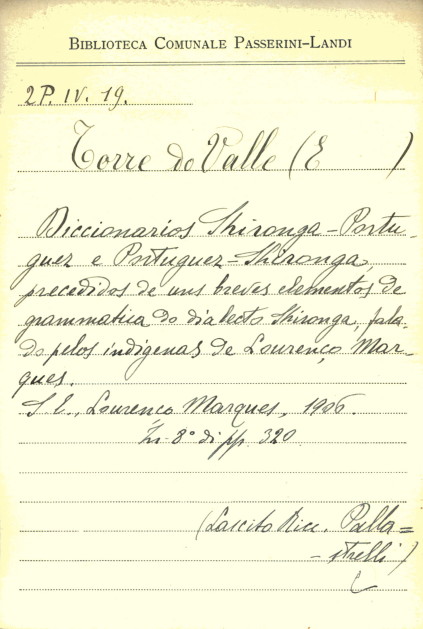 BIBLIOTECA COMUNALE PASSERINI-LANDI
2P. IV. 19.
Torre do Valle (E )
Diccionarios Shironga-Portu-
guez e Portuguez-Shironga,
precedidos de uns breves elementos de
grammatica do dialecto Shironga, fala-
do pelos indigenas de Lourenço Mar-
ques.
S. E., Lourenço Marques, 1906.
In 8° di pp. 320.
(Lascito Ricc. Palla=
-strelli)